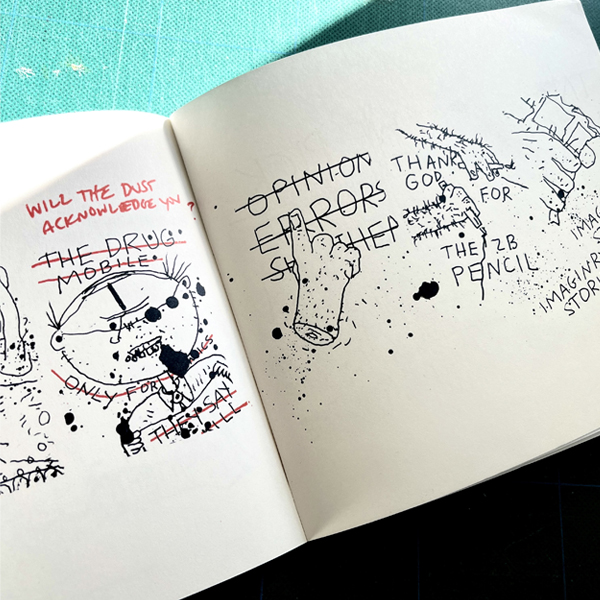 WILL THE DUST
ACKNOWLEDGE YOU ?
THE DRUG
MOBILE.
ONLY FOR
THE
OPINION
ERRORS
THANK
GOD
FOR
THE 2B
PENCIL
IMAGINR
STORI